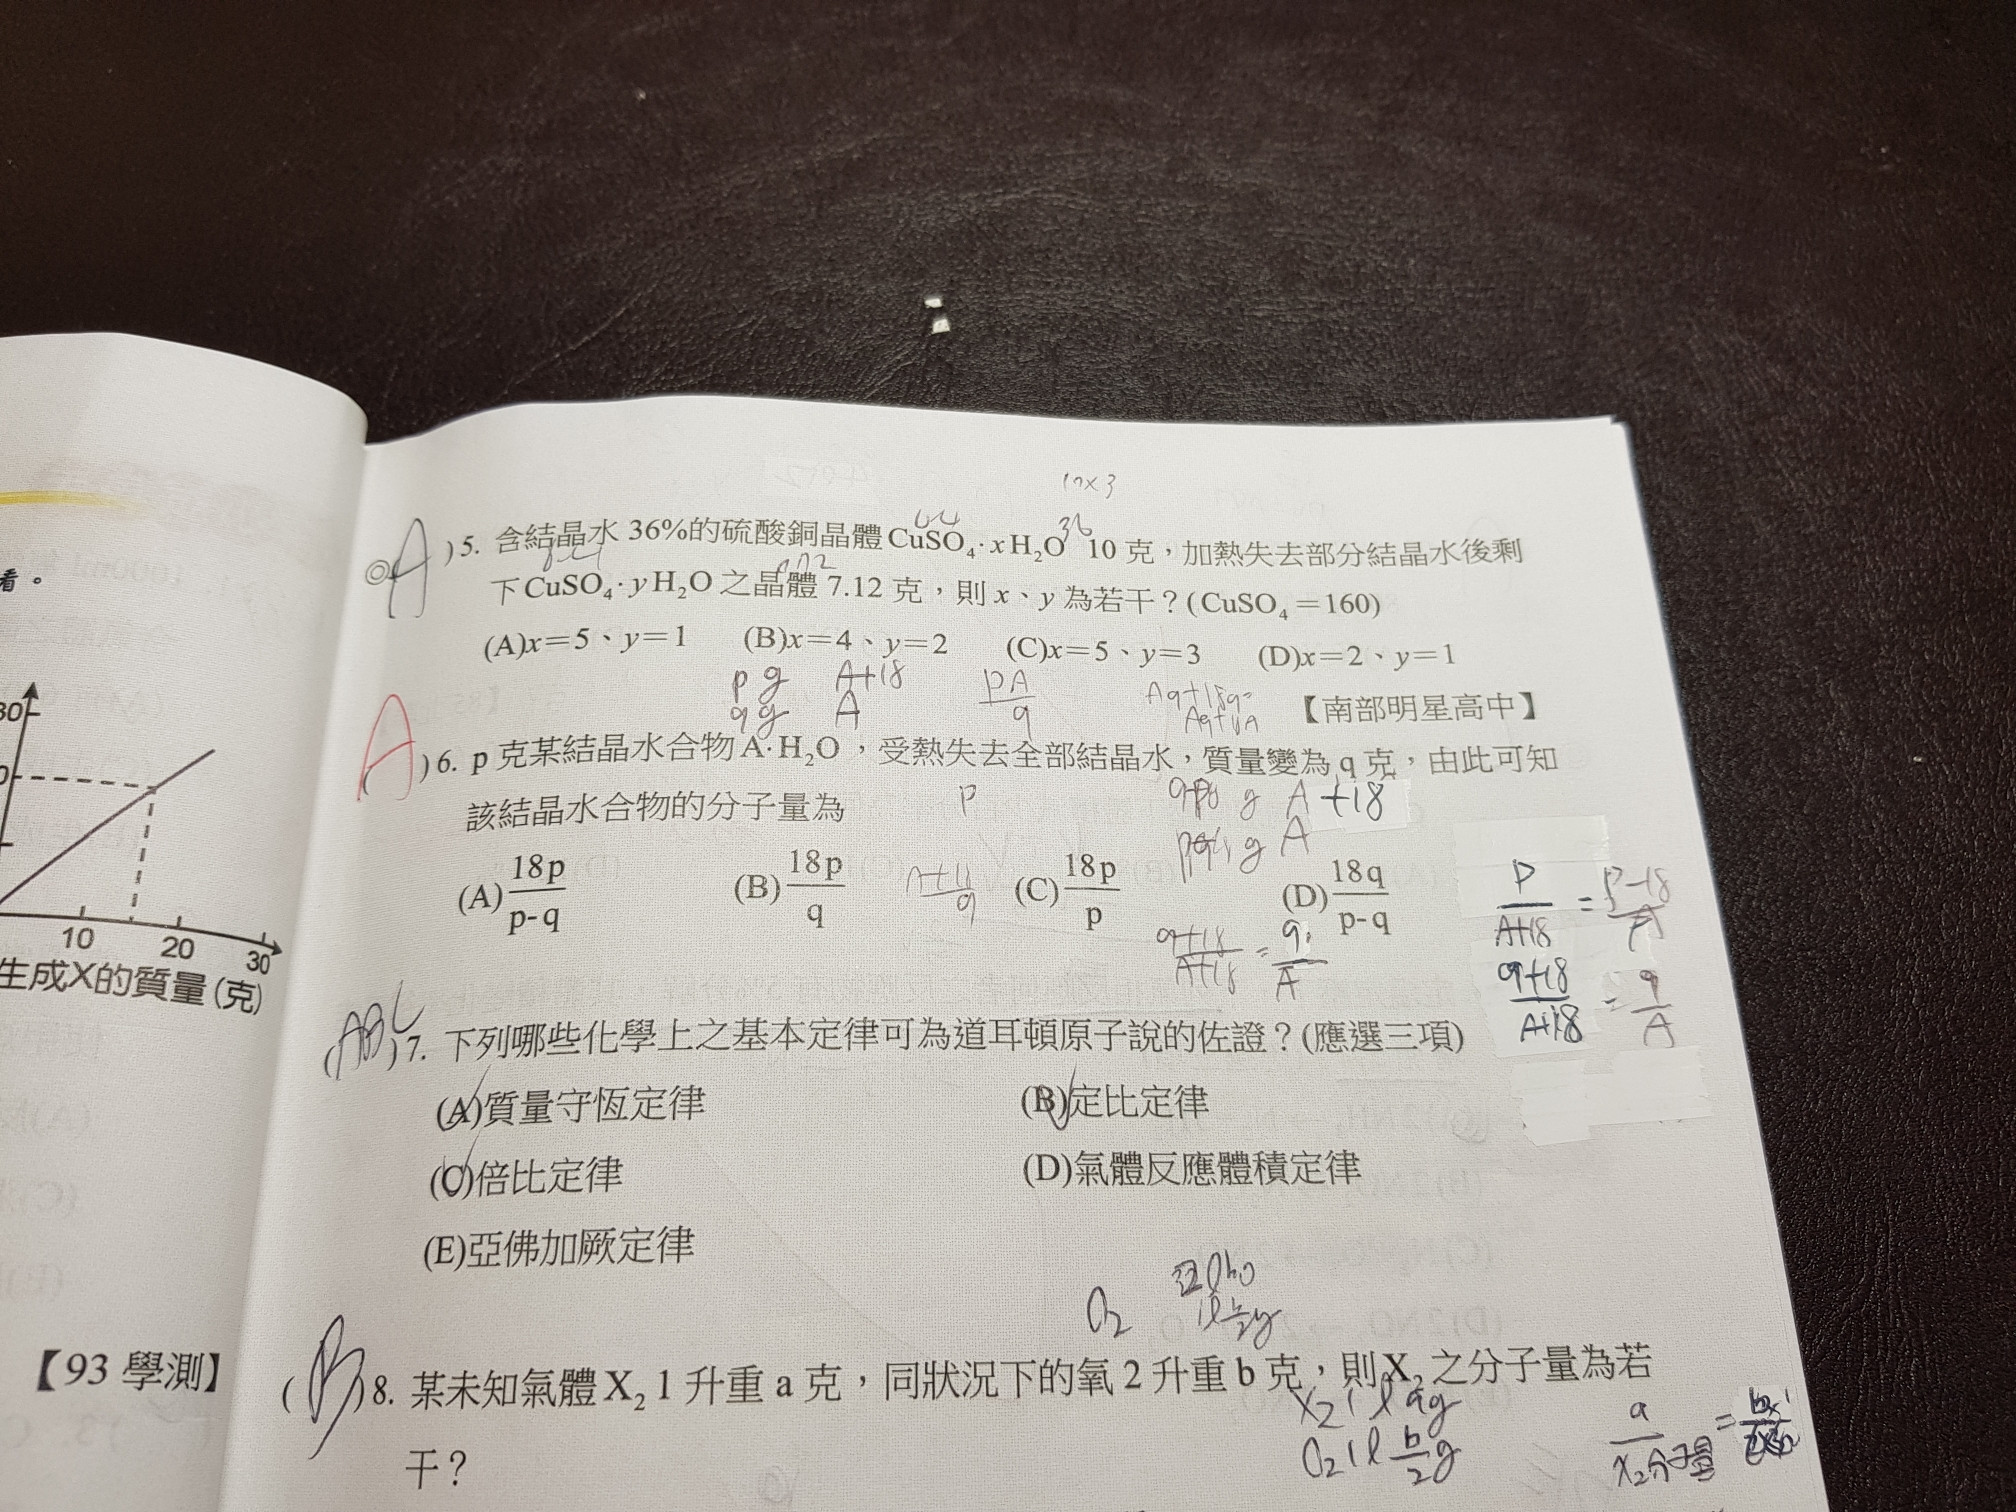 看。
30
0
10 20 30
生成X的質量(克)
【93 學測】
10×3
64 36
◎(A)5. 含結晶水 36%的硫酸銅晶體CuSO₄·xH₂O 10 克，加熱失去部分結晶水後剩
下CuSO₄·yH₂O之晶體 7.12 克，則 x、y 為若干？(CuSO₄＝160)
(A)x＝5、y＝1 (B)x＝4、y＝2 (C)x＝5、y＝3 (D)x＝2、y＝1
p g A+18 pA/q
q g A
【南部明星高中】
(A)6. p 克某結晶水合物A·H₂O，受熱失去全部結晶水，質量變為 q 克，由此可知
該結晶水合物的分子量為 p g A+18
g A
(A) 18p/p-q (B) 18p/q (C) 18p/p (D) 18q/p-q
p/A+18 = p-18/A
q+18/A+18 = q/A
q+18/A+18 = q/A
(ABC)7. 下列哪些化學上之基本定律可為道耳頓原子說的佐證？(應選三項)
(A)質量守恆定律 (B)定比定律
(C)倍比定律 (D)氣體反應體積定律
(E)亞佛加厥定律
O₂
1l b/2g
(B)8. 某未知氣體X₂ 1 升重 a 克，同狀況下的氧 2 升重 b 克，則X₂之分子量為若
干？
X₂ 1 l ag
O₂ 1l b/2 g
a/X₂分子量 =